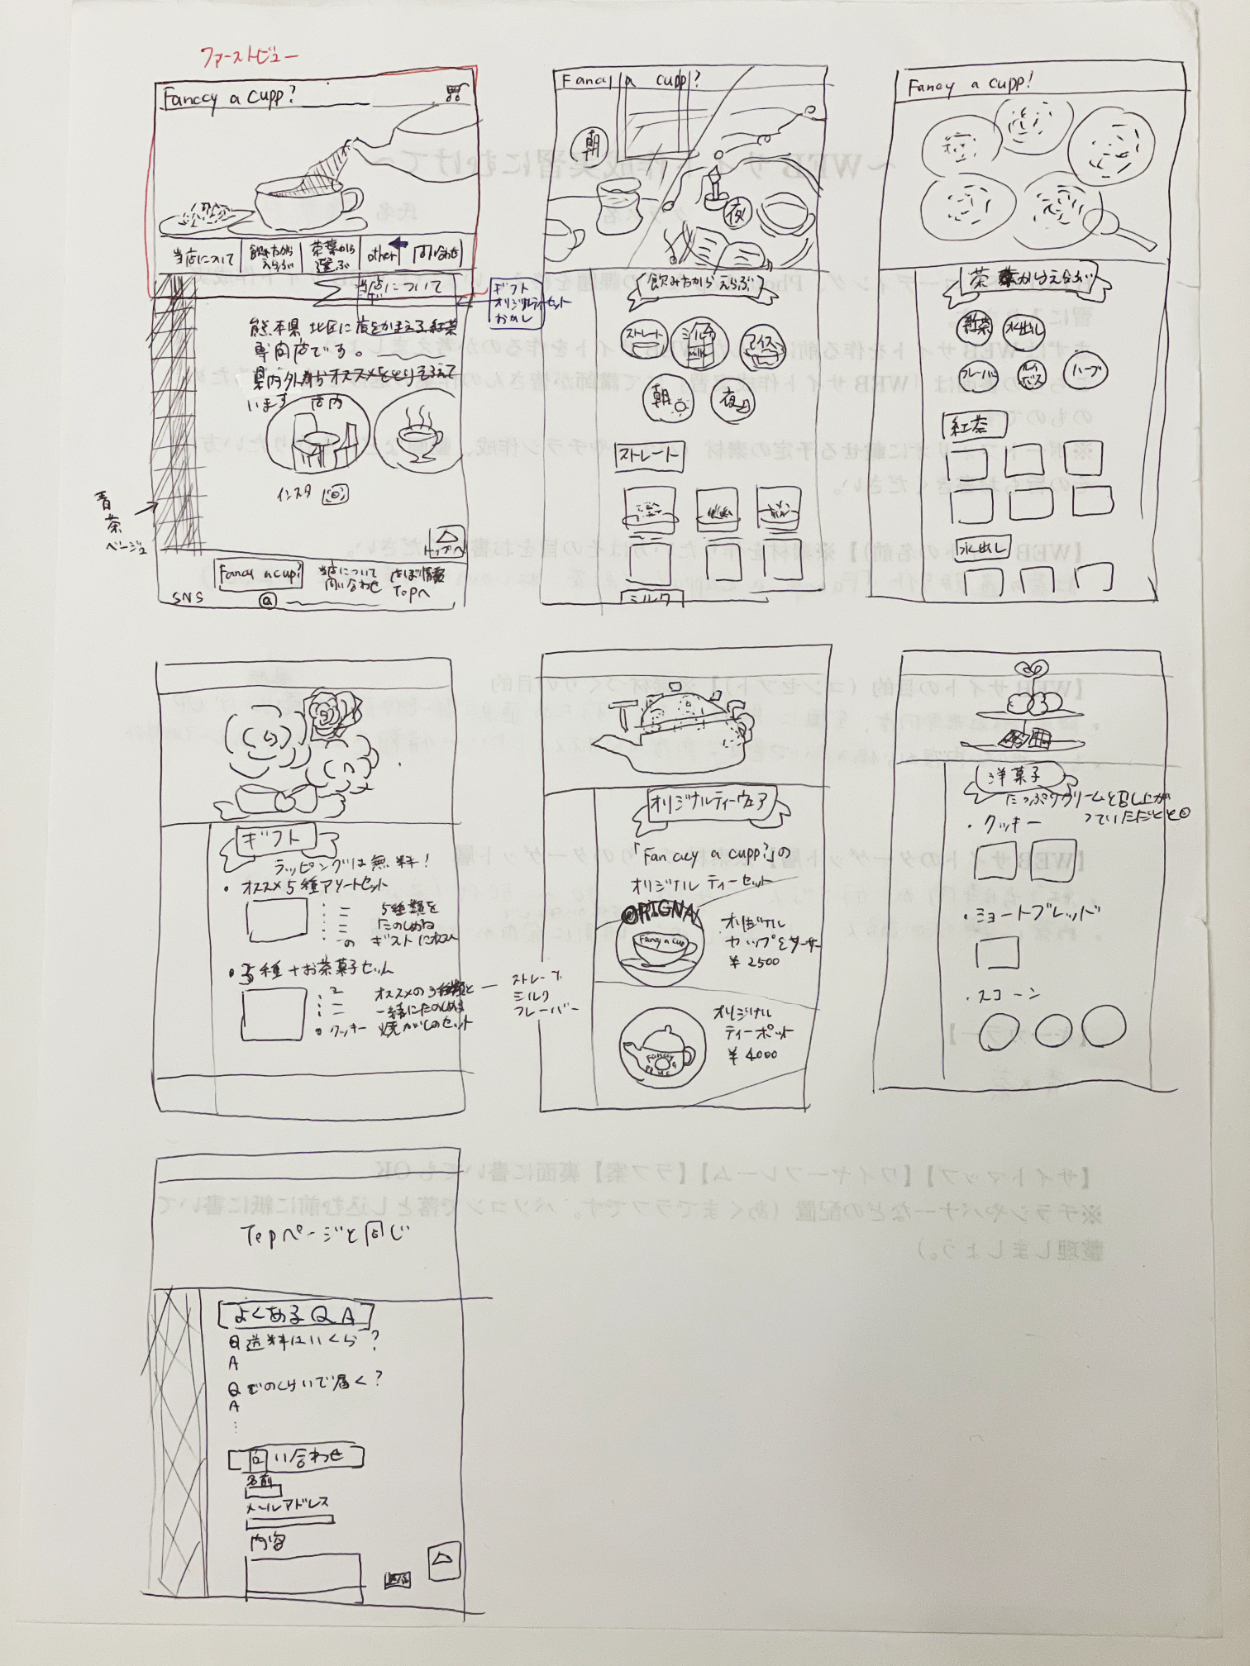 ファーストビュー
Fanccy a cupp?
当店について
飲み方から
えらぶ
茶葉から
選ぶ
other
問い合わせ
当店について
ギフト
オリジナルティーセット
おかし
熊本県 北区に店をかまえる紅茶
専門店です。
県内外からオススメをとりそろえて
います
店内
インスタ
青
茶
ベージュ
トップへ
Fancy a cup?
当店について
問い合わせ
店ぽ情報
Topへ
SNS
Fancy a cupp?
朝
夜
飲み方からえらぶ
ストレート
ミルク
milk
アイス
朝
夜
ストレート
ミルク
Fancy a cupp!
茶葉からえらぶ
紅茶
水出し
フレーバー
ハーブ
紅茶
水出し
ギフト
ラッピングは無料!
・オススメ5種アソートセット
5種類を
たのしめる
・5種+お茶菓子セット
オススメの5種類と
一緒にたのしめる
クッキー 焼がしのセット
ストレート
ミルク
フレーバー
オリジナルティーウェア
「Fancy a cupp?」の
オリジナル ティーセット
ORIGNAL
Fancy a cup
オリジナル
カップ&ソーサー
¥2500
オリジナル
ティーポット
¥4000
洋菓子
たっぷりクリームと召し上が
っていただくと◎
・クッキー
・ショートブレッド
・スコーン
Topページと同じ
よくある Q A
Q 送料はいくら?
A
Q どのくらいで届く?
A
問い合わせ
名前
メールアドレス
内容
送信